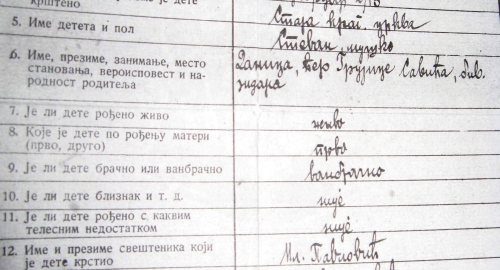 крштено
је дете
Стара крај. црква
5. Име детета и пол
Стеван, мушко
6. Име, презиме, занимање, место
становања, вероисповест и на-
родност родитеља
Даница, кер Грујице Савића, бив.
зидара
7. Је ли дете рођено живо
живо
8. Које је дете по рођењу матери
(прво, друго)
прво
9. Је ли дете брачно или ванбрачно
ванбрачно
10. Је ли дете близнак и т. д.
није
11. Је ли дете рођено с каквим
телесним недостатком
није
12. Име и презиме свештеника који
је дете крстио
Мл. Павловић